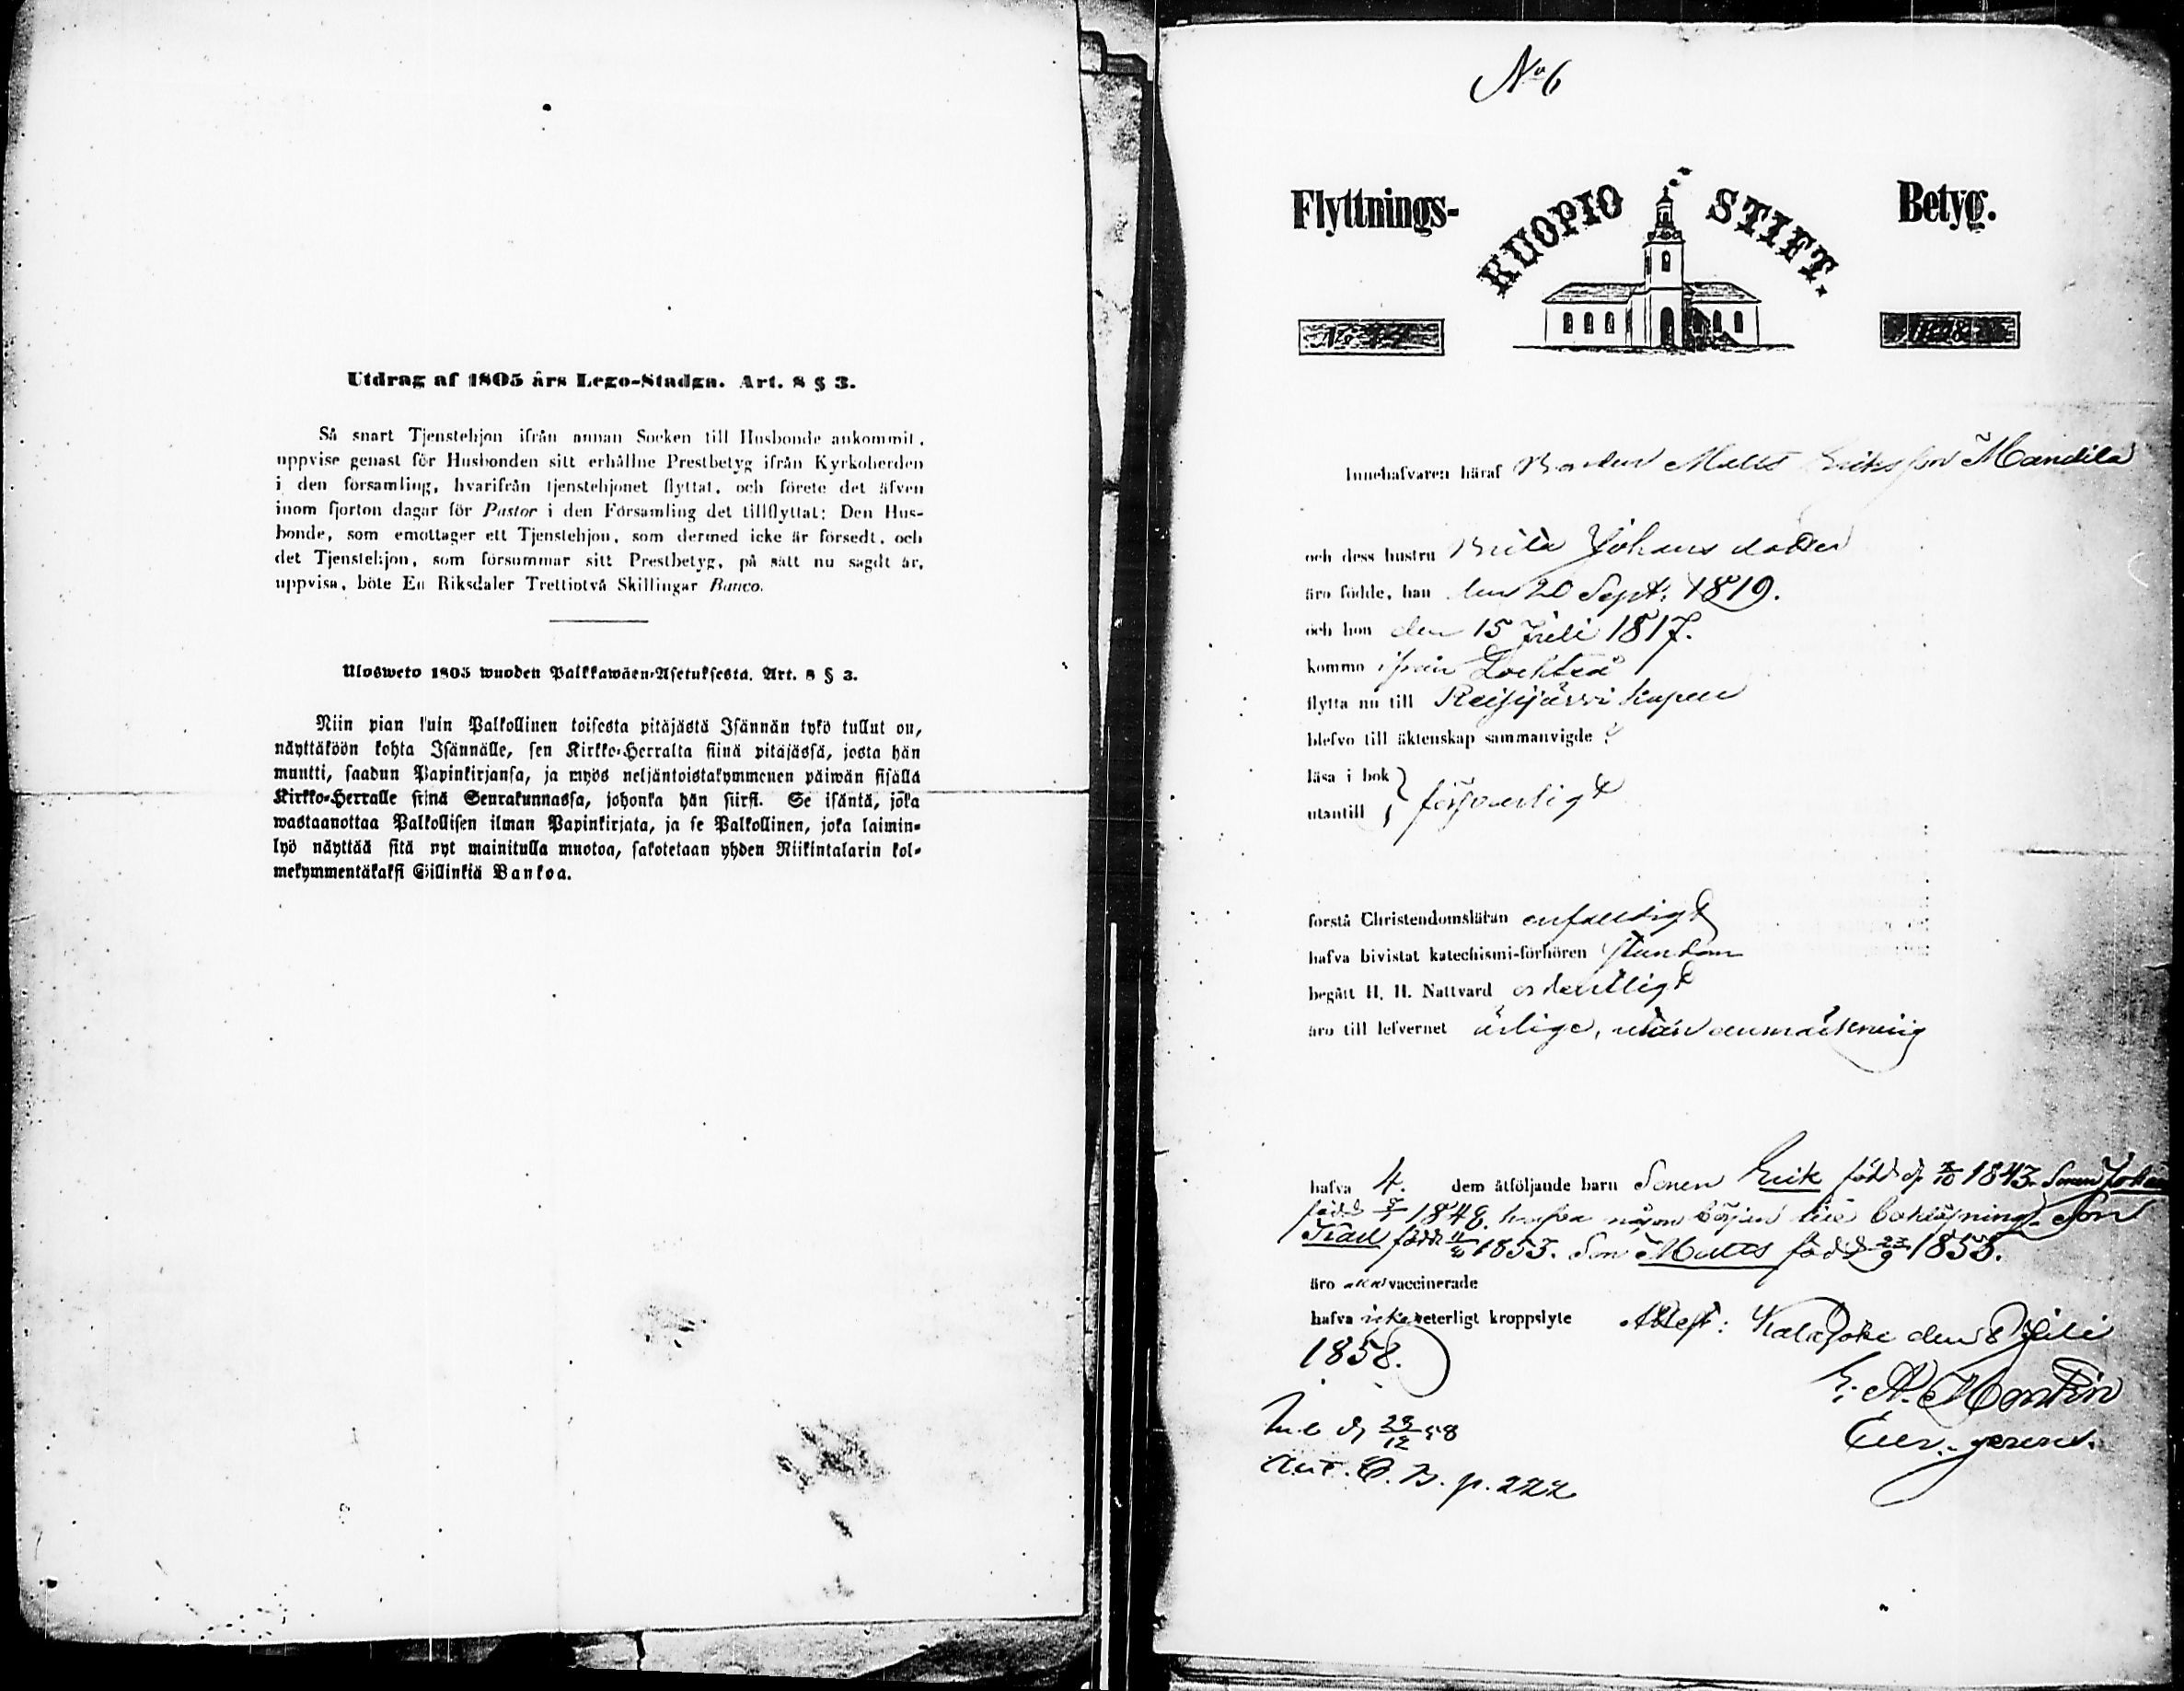 Utdrag af 1805 års Lego-Stadga. Art. 8 § 3.
Så snart Tjenstehjon ifrån annan Socken till Husbonde ankommit,
uppvise genast för Husbonden sitt erhållne Prestbetyg ifrån Kyrkoherden
i den församling, hvarifrån tjenstehjonet flyttat, och förete det äfven
inom fjorton dagar för Pastor i den Församling det tillflyttat: Den Hus-
bonde, som emottager ett Tjenstehjon, som dermed icke är försedt, och
det Tjenstehjon, som försummar sitt Prestbetyg, på sätt nu sagdt är,
uppvisa, böte En Riksdaler Trettiotvå Skillingar Banco.
Ulosweto 1805 wuoden Palkkawäen-Asetuksesta. Art. 8 § 3.
Niin pian kuin Palkollinen toisesta pitäjästä Isännän tykö tullut on,
näyttäköön kohta Isännälle, sen Kirkko-Herralta siinä pitäjässä, josta hän
muutti, saadun Papinkirjansa, ja myös neljäntoistakymmenen päiwän sisällä
Kirkko-Herralle siinä Seurakunnassa, johonka hän siirsi. Se isäntä, joka
wastaanottaa Palkollisen ilman Papinkirjata, ja se Palkollinen, joka laimin-
lyö näyttää sitä nyt mainitulla muotoa, sakotetaan yhden Riikintalarin kol-
mekymmentäkaksi Sillinkiä Bankoa.
No 6
Flyttnings- KUOPIO STIFT. Betyg.
Innehafvaren häraf Bonden Matts Eriksson Mandila
och dess hustru Brita Johans dotter
äro födde, han den 20 Sept. 1819.
och hon den 15 Juli 1817.
komma ifrån Lochteå
flytta nu till Reisjärvi kapell
blefvo till äktenskap sammanvigde ?
läsa i bok
utantill försvarligt
förstå Christendomsläran enfaldigt
hafva bivistat katechismi-förhören stundom
begått H. H. Nattvard ordentligt
äro till lefvernet ärlige, utan anmärkning
hafva 4. dem åtföljande barn Sonen Erik född d. 1843. Sonen Johan
född 1848. hafva någon början till bokläsning. Son
Karl född 1853. Son Matts född 23/9 1855.
äro alla vaccinerade
hafva icke veterligt kroppslyte Attest: Kalajoki den 8 Juli
1858.
E. A. Montin
Inl. d. 28/12 58
Ant. C. B. p. 222